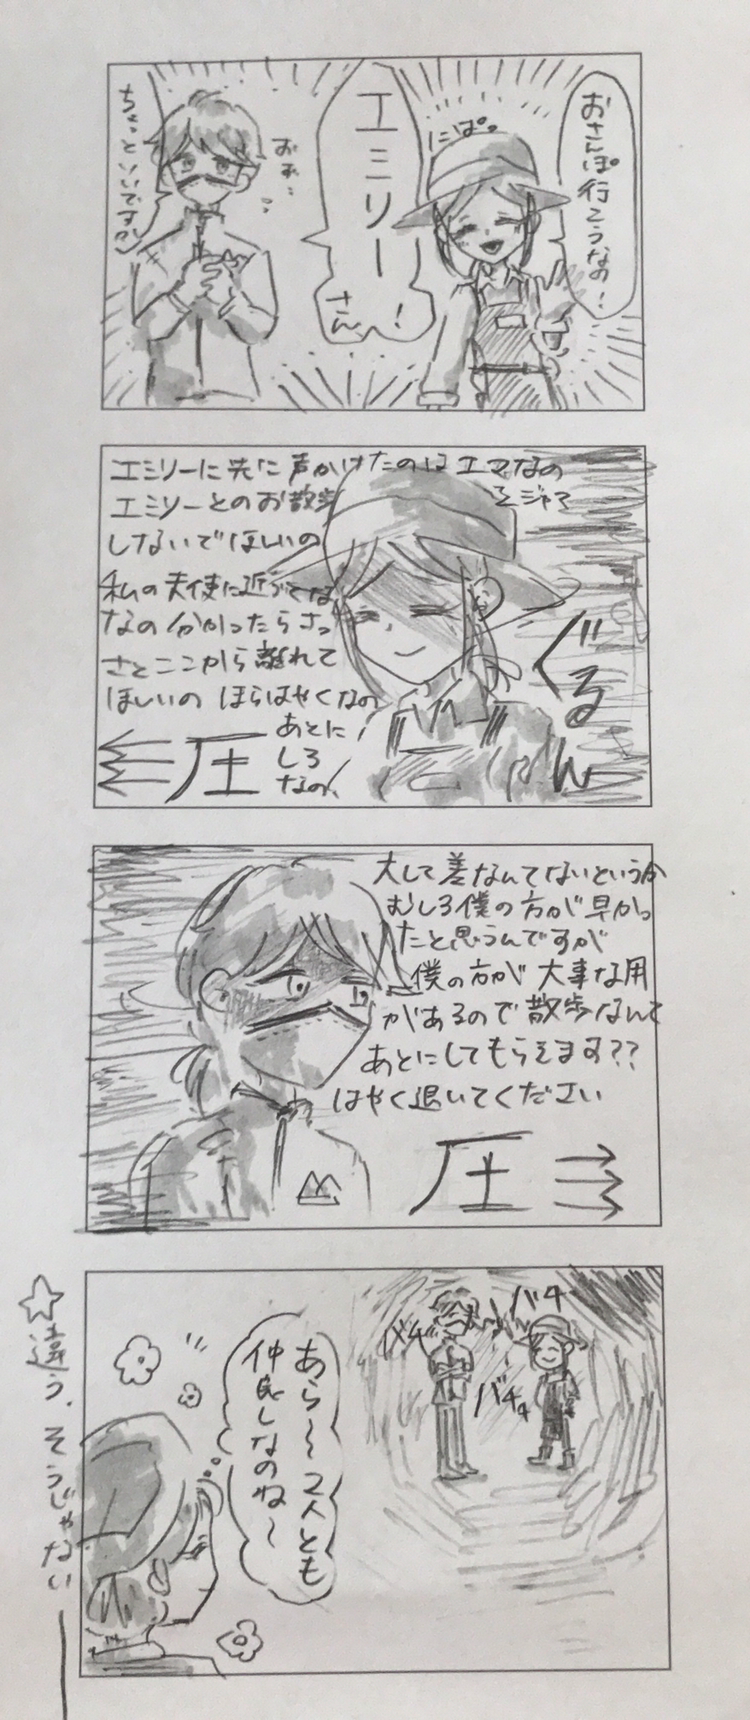 おさんぽ行こうなの！
にぱっ
エミリー
さん！
おお…
ちょっといいですか
エミリーに先に声かけたのはエマなの
エミリーとのお散歩をジャマ
しないでほしいの
私の天使に近づくな
なの分かったらさっ
さとここから離れて
ほしいのほらはやくなの
あとに
しろ
なの
ぐるん
圧
大して差なんてないという分
むしろ僕の方が早かっ
たと思うんですが
僕の方が大事な用
があるので散歩なんて
あとにしてもらえます??
はやく退いてください
圧
バチ
バチ
バチッ
あら〜2人とも
仲良しなのね〜
☆違う、そうじゃない